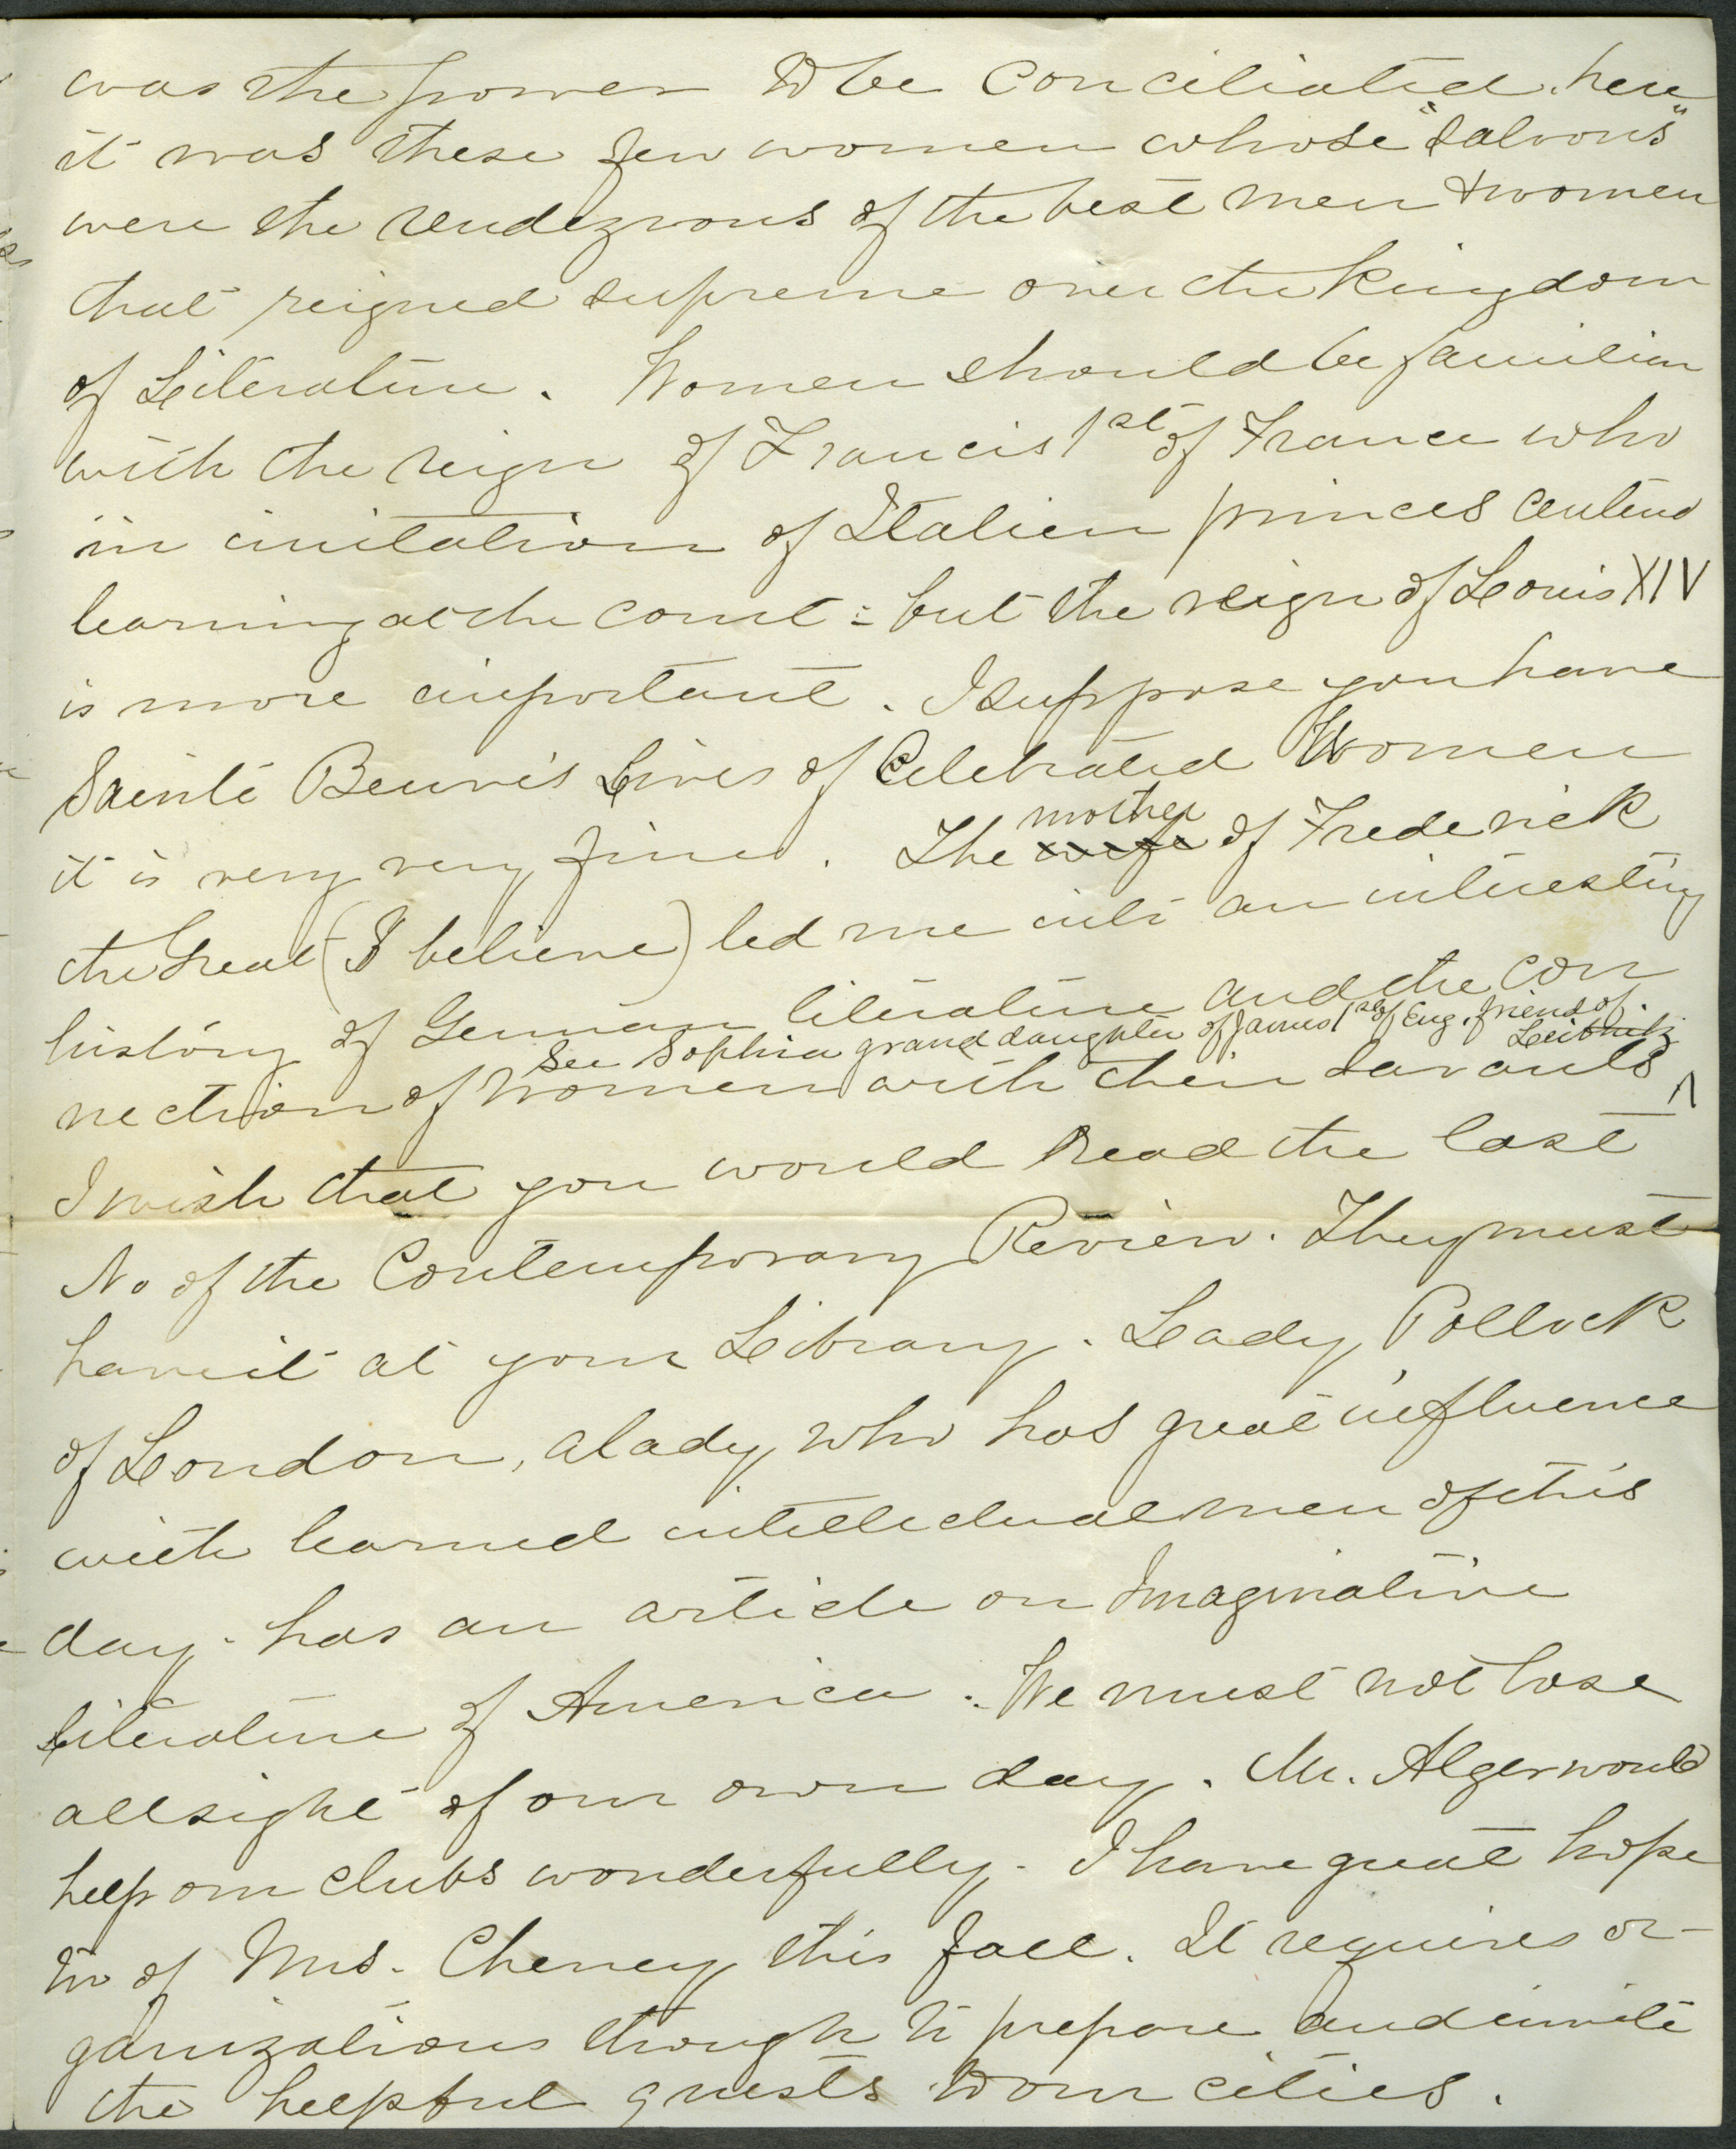 was the power to be conciliated. here
it was these few women whose "saloons"
were the rendezvous of the best men & women
that reigned supreme over the kingdom
of Literature. Women should be familiar
with the reign of Francis 1st of France who
in imitation of Italian princes
learning at the court: but the reign of Louis XIV
is more important. I suppose you have
Sainte Beuve's Lives of Celebrated Women
it is very very fine. The wife mother of Frederick
the Great (I believe) led me into an interesting
history of German literature and the con
See Sophia grand daughter of James 1st of Eng. friend of Leibnitz
nection of women with their savants ^
I wish that you would read the last
No of the Contemporary Review. They must
have it at your Library. Lady Pollock
of London, a lady, who has great influence
with learned intellectual men of this
day. has an article on Imaginative
Literature of America. We must not lose
all sight of our own day. Mr. Alger would
help our clubs wonderfully. I have great hope
too of Mrs. Cheney this fall. It requires or-
ganizations though to prepare and invite
the helpful guests to our cities.